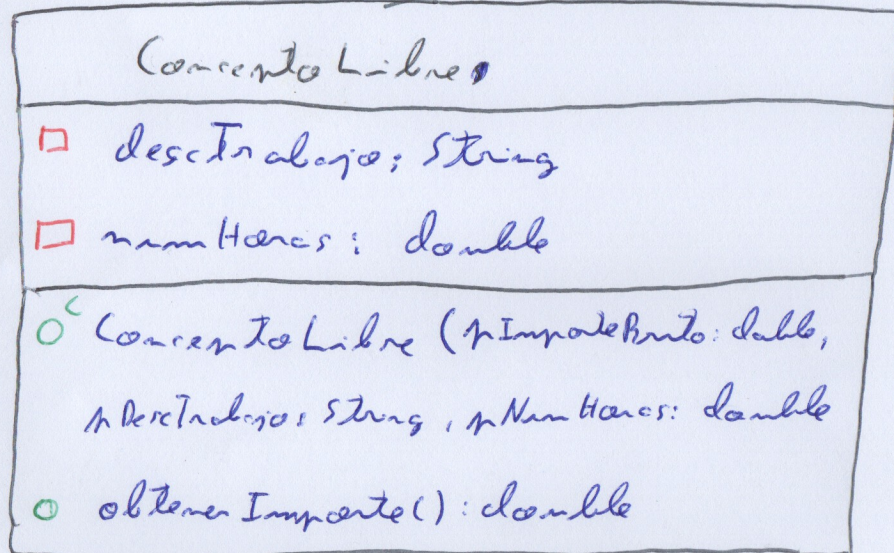 ConceptoLibre
descTrabajo: String
numHoras: double
c ConceptoLibre (pImporteBruto: doble,
pDescTrabajo: String, pNumHoras: double
obtenerImporte(): double